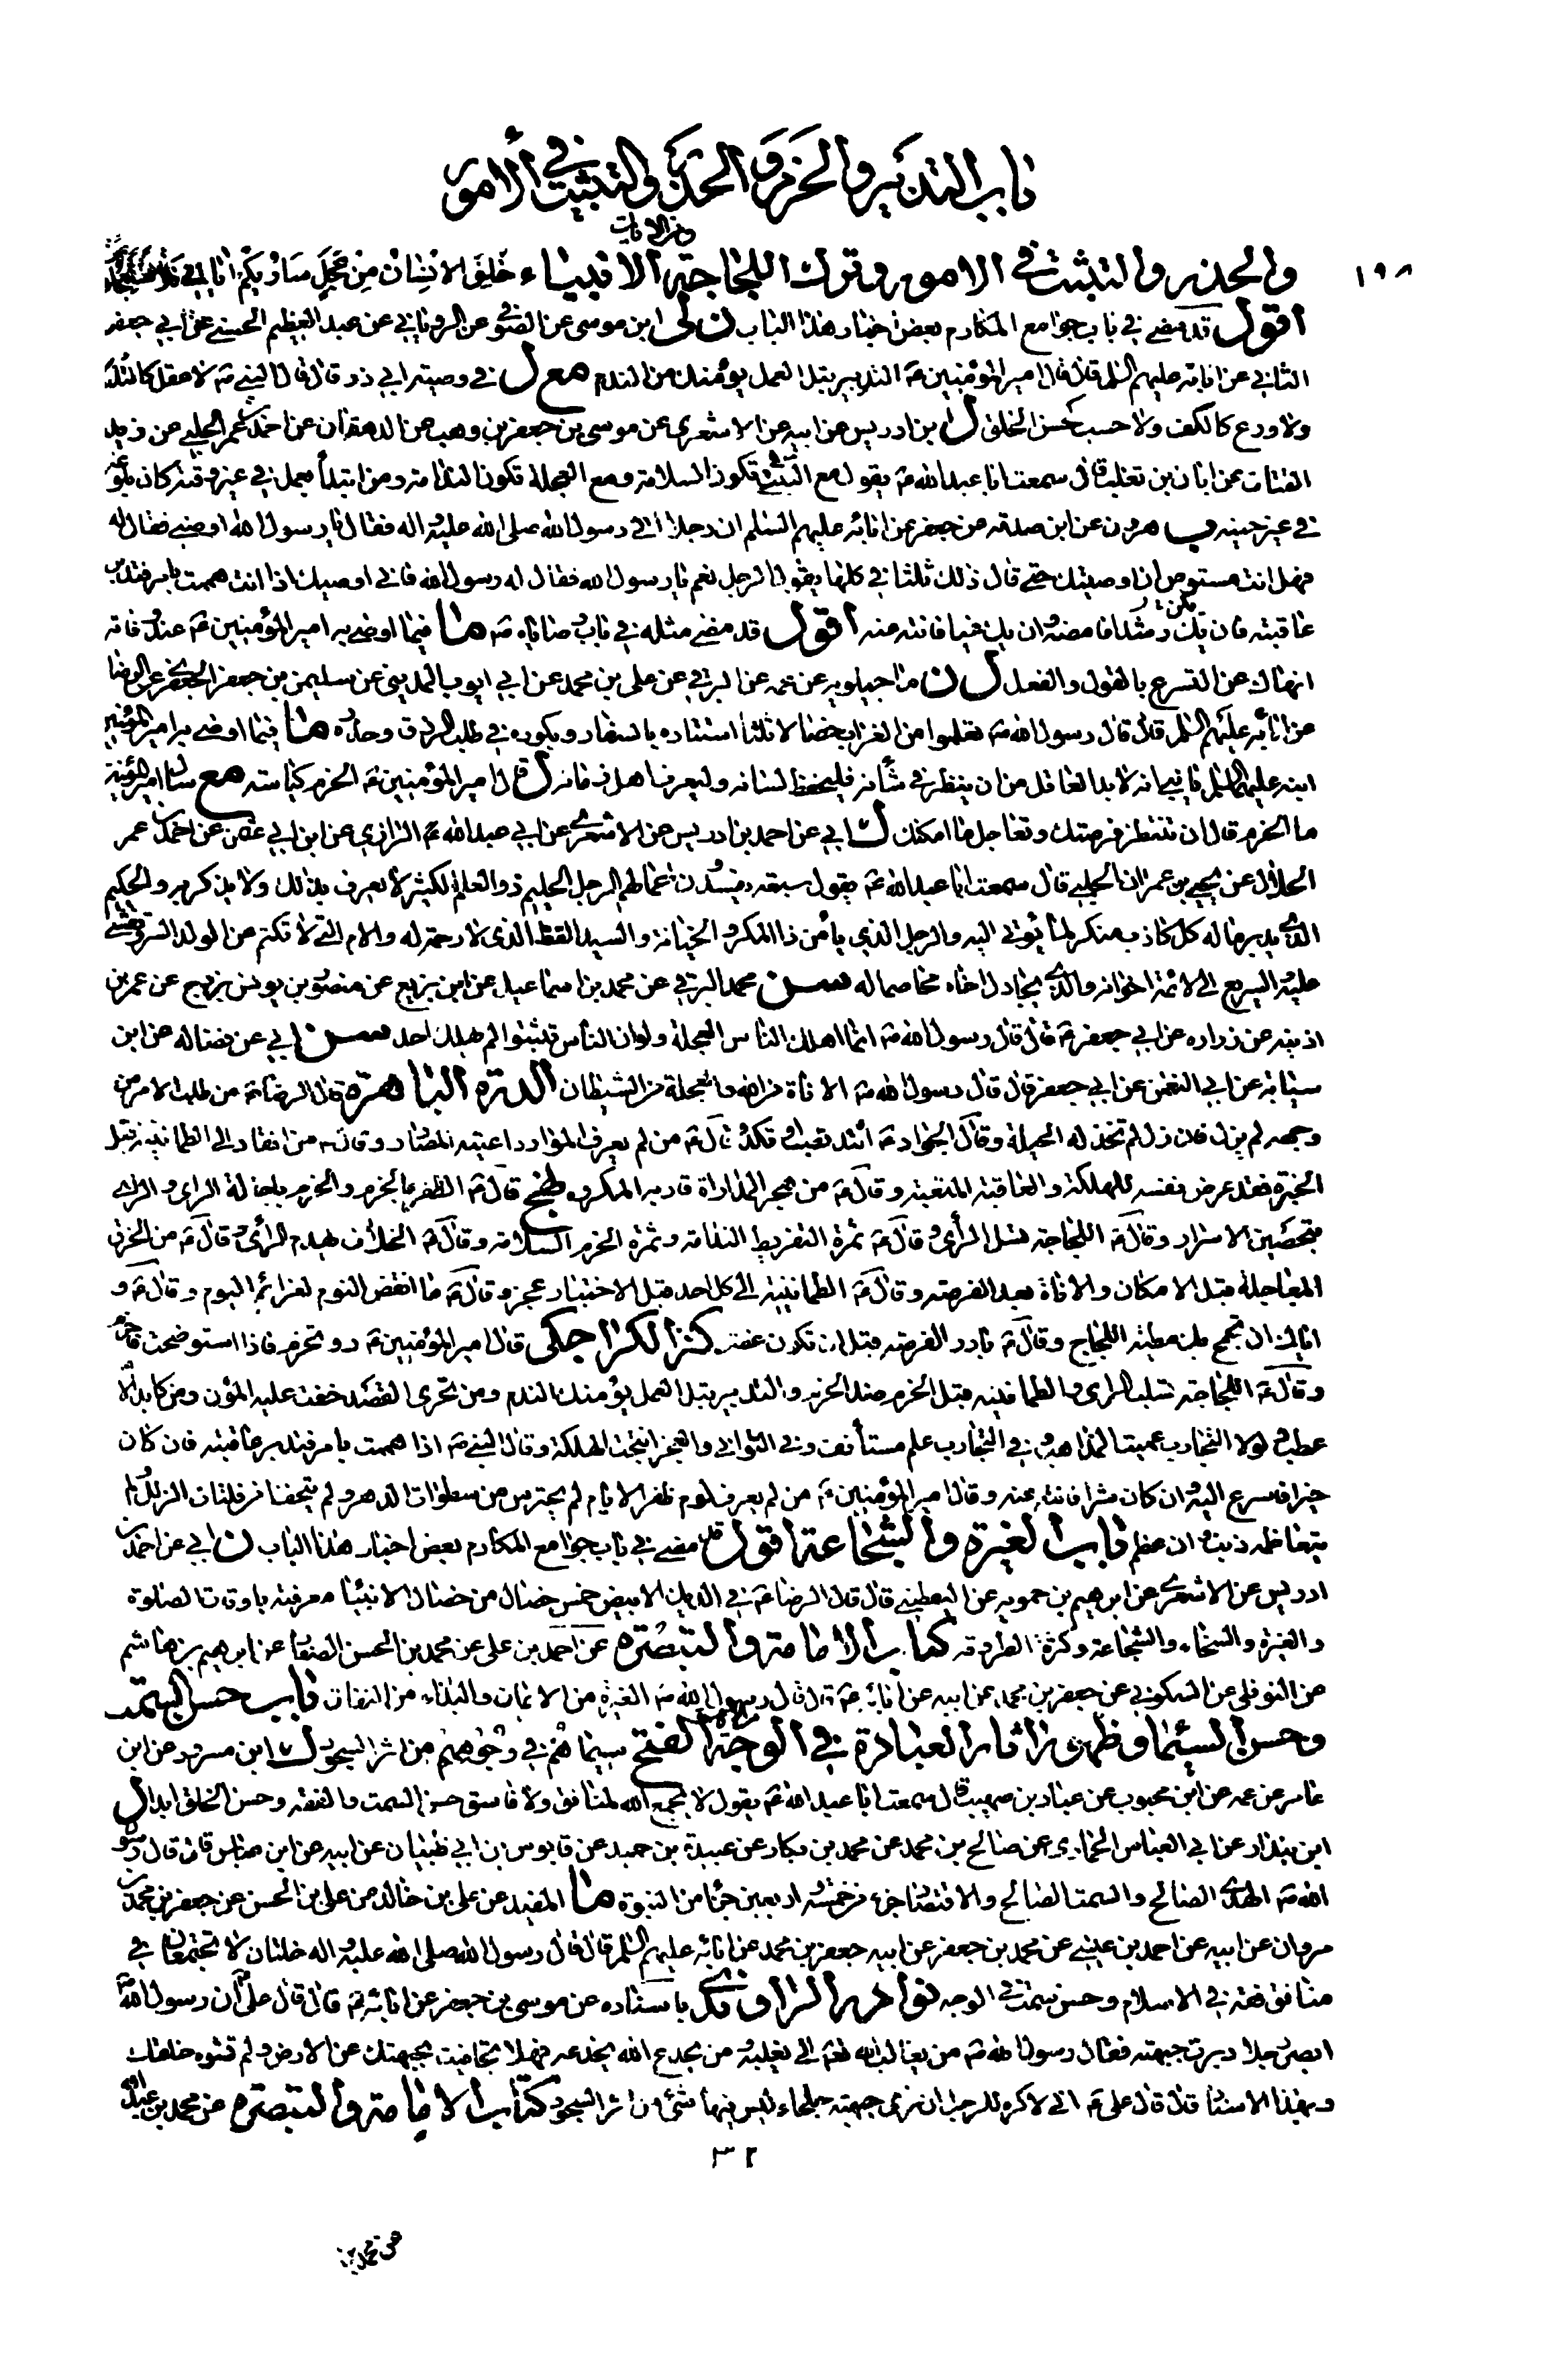 باب التدبير والحزم والحذر والتثبت في الامور
من الايات
١٩٨
والحذر والتثبت في الامور وترك اللجاجة الانبياء خلق الانسان من عجل ساوريكم اياتي فلا تستعجلون
اقول قد مضى في باب جوامع المكارم بعض اخبار هذا الباب ن لى ابن موسى عن الصوفي عن الروياني عن عبد العظيم الحسني عن ابي جعفر
الثاني عن ابائه عليهم السلم قال قال امير المؤمنين ع التدبير قبل العمل يؤمنك من الندم مع ل في وصيته ابي ذر قال قال النبي ص لا عقل كالتدبير
ولا ورع كالكف ولا حسب كحسن الخلق ل ابن ادريس عن ابيه عن الاشعري عن موسى بن جعفر بن وهب عن الدهقان عن احمد بن عمر الحلبي عن زيد
القتات عن ابان بن تغلب قال سمعت ابا عبد الله ع يقول مع التثبت تكون السلامة ومع العجلة تكون الندامة ومن ابتدأ بعمل في غير وقته كان بلوغه
في غير حينه ب هرون عن ابن صدقة عن جعفر عن ابائه عليهم السلم ان رجلا اتى رسول الله صلى الله عليه واله فقال يا رسول الله اوصني فقال له
فهل انت مستوص ان اوصيتك حتى قال ذلك ثلثا في كلها يقول الرجل نعم يا رسول الله فقال له رسول الله فاني اوصيك اذا انت هممت بامر فتدبر
عاقبته فان يك رشدا فامضه وان يك غيا فانته عنه اقول قد مضى مثله في باب وصاياه ص ما فيما اوصى به امير المؤمنين ع عند وفاته
انهاك عن التسرع بالقول والفعل ل ن ماجيلويه عن عمه عن البرقي عن علي بن محمد عن ابي ايوب المديني عن سليمن بن جعفر الجعفري عن الرضا
عن ابائه عليهم السلم قال قال رسول الله ص تعلموا من الغراب خصالا ثلثا استتاره بالسفاد وبكوره في طلب الرزق وحذره ما فيما اوصى به امير المؤمنين
ابنه عليهما السلم يا بني انه لا بد للعاقل من ان ينظر في شأنه فليحفظ لسانه وليعرف اهل زمانه ل قال امير المؤمنين ع الحزم كياسة مع سئل امير المؤمنين
ما الحزم قال ان تنتظر فرصتك وتعاجل ما امكنك ل ابي عن احمد بن ادريس عن الاشعري عن ابي عبد الله الرازي عن ابن ابي عثمن عن احمد بن عمر
الحلال عن يحيى بن عمران الحلبي قال سمعت ابا عبد الله ع يقول سبعة يفسدون اعمالهم الرجل الحليم ذو العلم الكثير لا يعرف بذلك ولا يذكر به والحكيم
الذي يدبر ماله كل كاذب منكر لما يؤتى اليه والرجل الذي يأمن ذا المكر والخيانة والسيد الفظ الذي لا رحمة له والام التي لا تكتم عن الولد السر وتفشي
عليه السريع الى لائمة اخوانه والذي يجادل اخاه مخاصما له سن محمد البرقي عن محمد بن اسماعيل عن ابن بزيع عن منصور بن يونس بزرج عن عمر بن
اذينه عن زراره عن ابي جعفر ع قال قال رسول الله ص انما اهلك الناس العجلة ولو ان الناس تثبتوا لم يهلك احد سن ابي عن فضاله عن ابن
سيابة عن ابي النعمن عن ابي جعفر قال قال رسول الله ص الاناة من الله والعجلة من الشيطان الدرة الباهرة قال الرضا ع من طلب الامر من
وجهه لم يزل فان زل لم تخذله الحيلة وقال الجواد ع اتئد تصب او تكد وقال ع من لم يعرف الموارد اعيته المصادر وقال ع من انقاد الى الطمانينة قبل
الخبرة فقد عرض نفسه للهلكة والعاقبة المتعبة وقال ع من هجر المداراة قاربه المكروه نهج قال ع الظفر بالحزم والحزم باجالة الراي والراي
بتحصين الاسرار وقال ع اللجاجة تسل الرأي وقال ع ثمرة التفريط الندامة وثمرة الحزم السلامة وقال ع الخلاف يهدم الرأي وقال ع من الخرق
المعاجلة قبل الامكان والاناة بعد الفرصة وقال ع الطمانينة الى كل احد قبل الاختبار عجز وقال ع ما انقض النوم لعزائم اليوم وقال ع و
اياك ان تجمح بك مطية اللجاج وقال ع بادر الفرصة قبل ان تكون غصة كنز الكراجكى قال امير المؤمنين ع رو تحزم فاذا استوضحت فاجزم
وقال ع اللجاجة تسلب الراي والطمانينة قبل الحزم ضد الحزم والتدبير قبل العمل يؤمنك الندم ومن تحرى القصد خفت عليه المؤن ومن كابد الامور
عطب ولولا التجارب عميت المذاهب وفي التجارب علم مستأنف وفي التواني والعجز انتجت الهلكة وقال النبي ص اذا هممت بامر فتدبر عاقبته فان كان
خيرا فاسرع اليه وان كان شرا فانته عنه وقال امير المؤمنين ع من لم يعرف لوم ظفر الايام لم يحترس من سطوات الدهر ولم يتحفظ من فلتات الزلل ولم
يتعاظمه ذنب وان عظم باب الغيرة والشجاعة اقول قد مضى في باب جوامع المكارم بعض اخبار هذا الباب ن ابي عن احمد بن
ادريس عن الاشعري عن ابرهيم بن حمويه عن اليقطيني قال قال الرضا ع في الديك الابيض خمس خصال من خصال الانبيا معرفته باوقات الصلوة
والغيرة والسخاء والشجاعة وكثرة الطروقه كتاب الامامة والتبصره عن احمد بن علي عن محمد بن الحسن الصفار عن ابرهيم بن هاشم
عن النوفلي عن السكوني عن جعفر بن محمد عن ابيه عن ابائه ع قال قال رسول الله ص الغيرة من الايمان والبذاء من النفاق باب حسن السمت
وحسن السيماء وظهور اثار العبادة في الوجه الفتح سيماهم في وجوههم من اثر السجود ل ابن مسرور عن ابن
عامر عن عمه عن ابن محبوب عن عباد بن صهيب قال سمعت ابا عبد الله ع يقول لا يجمع الله لمنافق ولا فاسق حسن السمت والفقه وحسن الخلق ابدا ل
ابن بندار عن ابي العباس الحمادي عن صالح بن محمد عن محمد بن بكار عن عبيدة بن حميد عن قابوس بن ابي ظبيان عن ابيه عن ابن عباس قال قال رسول
الله ص الهدي الصالح والسمت الصالح والاقتصاد جزء من خمسة واربعين جزءا من النبوة ما المفيد عن علي بن خالد عن علي بن الحسن عن جعفر بن محمد بن
مروان عن ابيه عن احمد بن عيسى عن محمد بن جعفر عن ابيه جعفر بن محمد عن ابائه عليهم السلم قال قال رسول الله صلى الله عليه واله خلتان لا تجتمعان في
منافق فقه في الاسلام وحسن سمت في الوجه نوادر الراوندي باسناده عن موسى بن جعفر عن ابائه ع قال قال علي ع ان رسول الله ص
ابصر رجلا دبرت جبهته فقال رسول الله ص من يغالب الله يغلبه ومن يخدع الله يخدعه فهلا تجافيت بجبهتك عن الارض ولم تشوه خلقك
وبهذا الاسناد قال قال علي ع اني لاكره للرجل ان ترى جبهته جلحاء ليس فيها شئ من اثر السجود كتاب الامامة والتبصره عن محمد بن عبد الله
٣٢
عن محمد بن